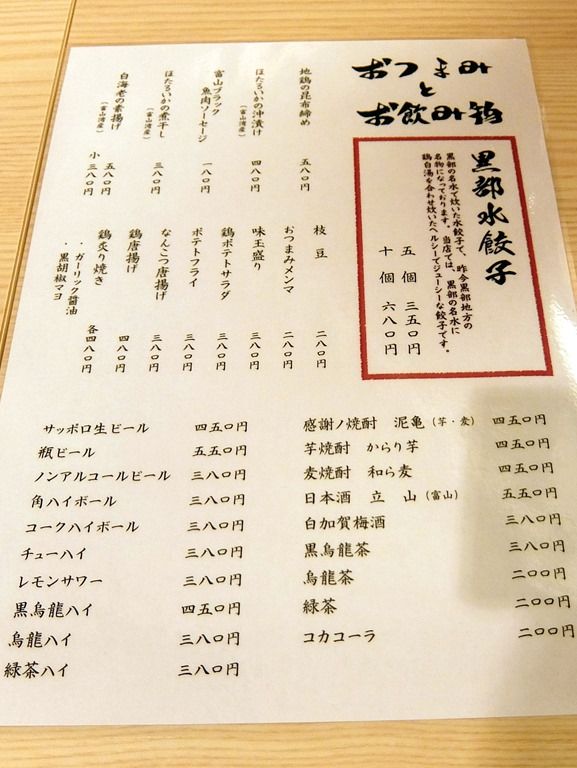 おつまみ
と
お飲み物
黒部水餃子
黒部の名水で炊いた水餃子で、昨今黒部地方の
名物になっております。当店では、黒部の名水に
鶏白湯を合わせ炊いたヘルシーでジューシーな餃子です。
五個 三五〇円
十個 六八〇円
地鶏の昆布締め 五八〇円
ほたるいかの沖漬け (富山湾産) 四八〇円
富山ブラック
魚肉ソーセージ 一八〇円
ほたるいかの煮干し (富山湾産) 三八〇円
白海老の素揚げ (富山湾産) 五八〇円
小 三八〇円
枝豆 二八〇円
おつまみメンマ 二八〇円
味玉盛り 三八〇円
鶏ポテトサラダ 三八〇円
ポテトフライ 三八〇円
なんこつ唐揚げ 三八〇円
鶏唐揚げ 四八〇円
鶏炙り焼き 各四八〇円
・ガーリック醤油
・黒胡椒マヨ
サッポロ生ビール 四五〇円
瓶ビール 五五〇円
ノンアルコールビール 三八〇円
角ハイボール 三八〇円
コークハイボール 三八〇円
チューハイ 三八〇円
レモンサワー 三八〇円
黒烏龍ハイ 四五〇円
烏龍ハイ 三八〇円
緑茶ハイ 三八〇円
感謝ノ焼酎 泥亀(芋・麦) 四五〇円
芋焼酎 からり芋 四五〇円
麦焼酎 和ら麦 四五〇円
日本酒 立山(富山) 五五〇円
白加賀梅酒 三八〇円
黒烏龍茶 三八〇円
烏龍茶 二〇〇円
緑茶 二〇〇円
コカコーラ 二〇〇円